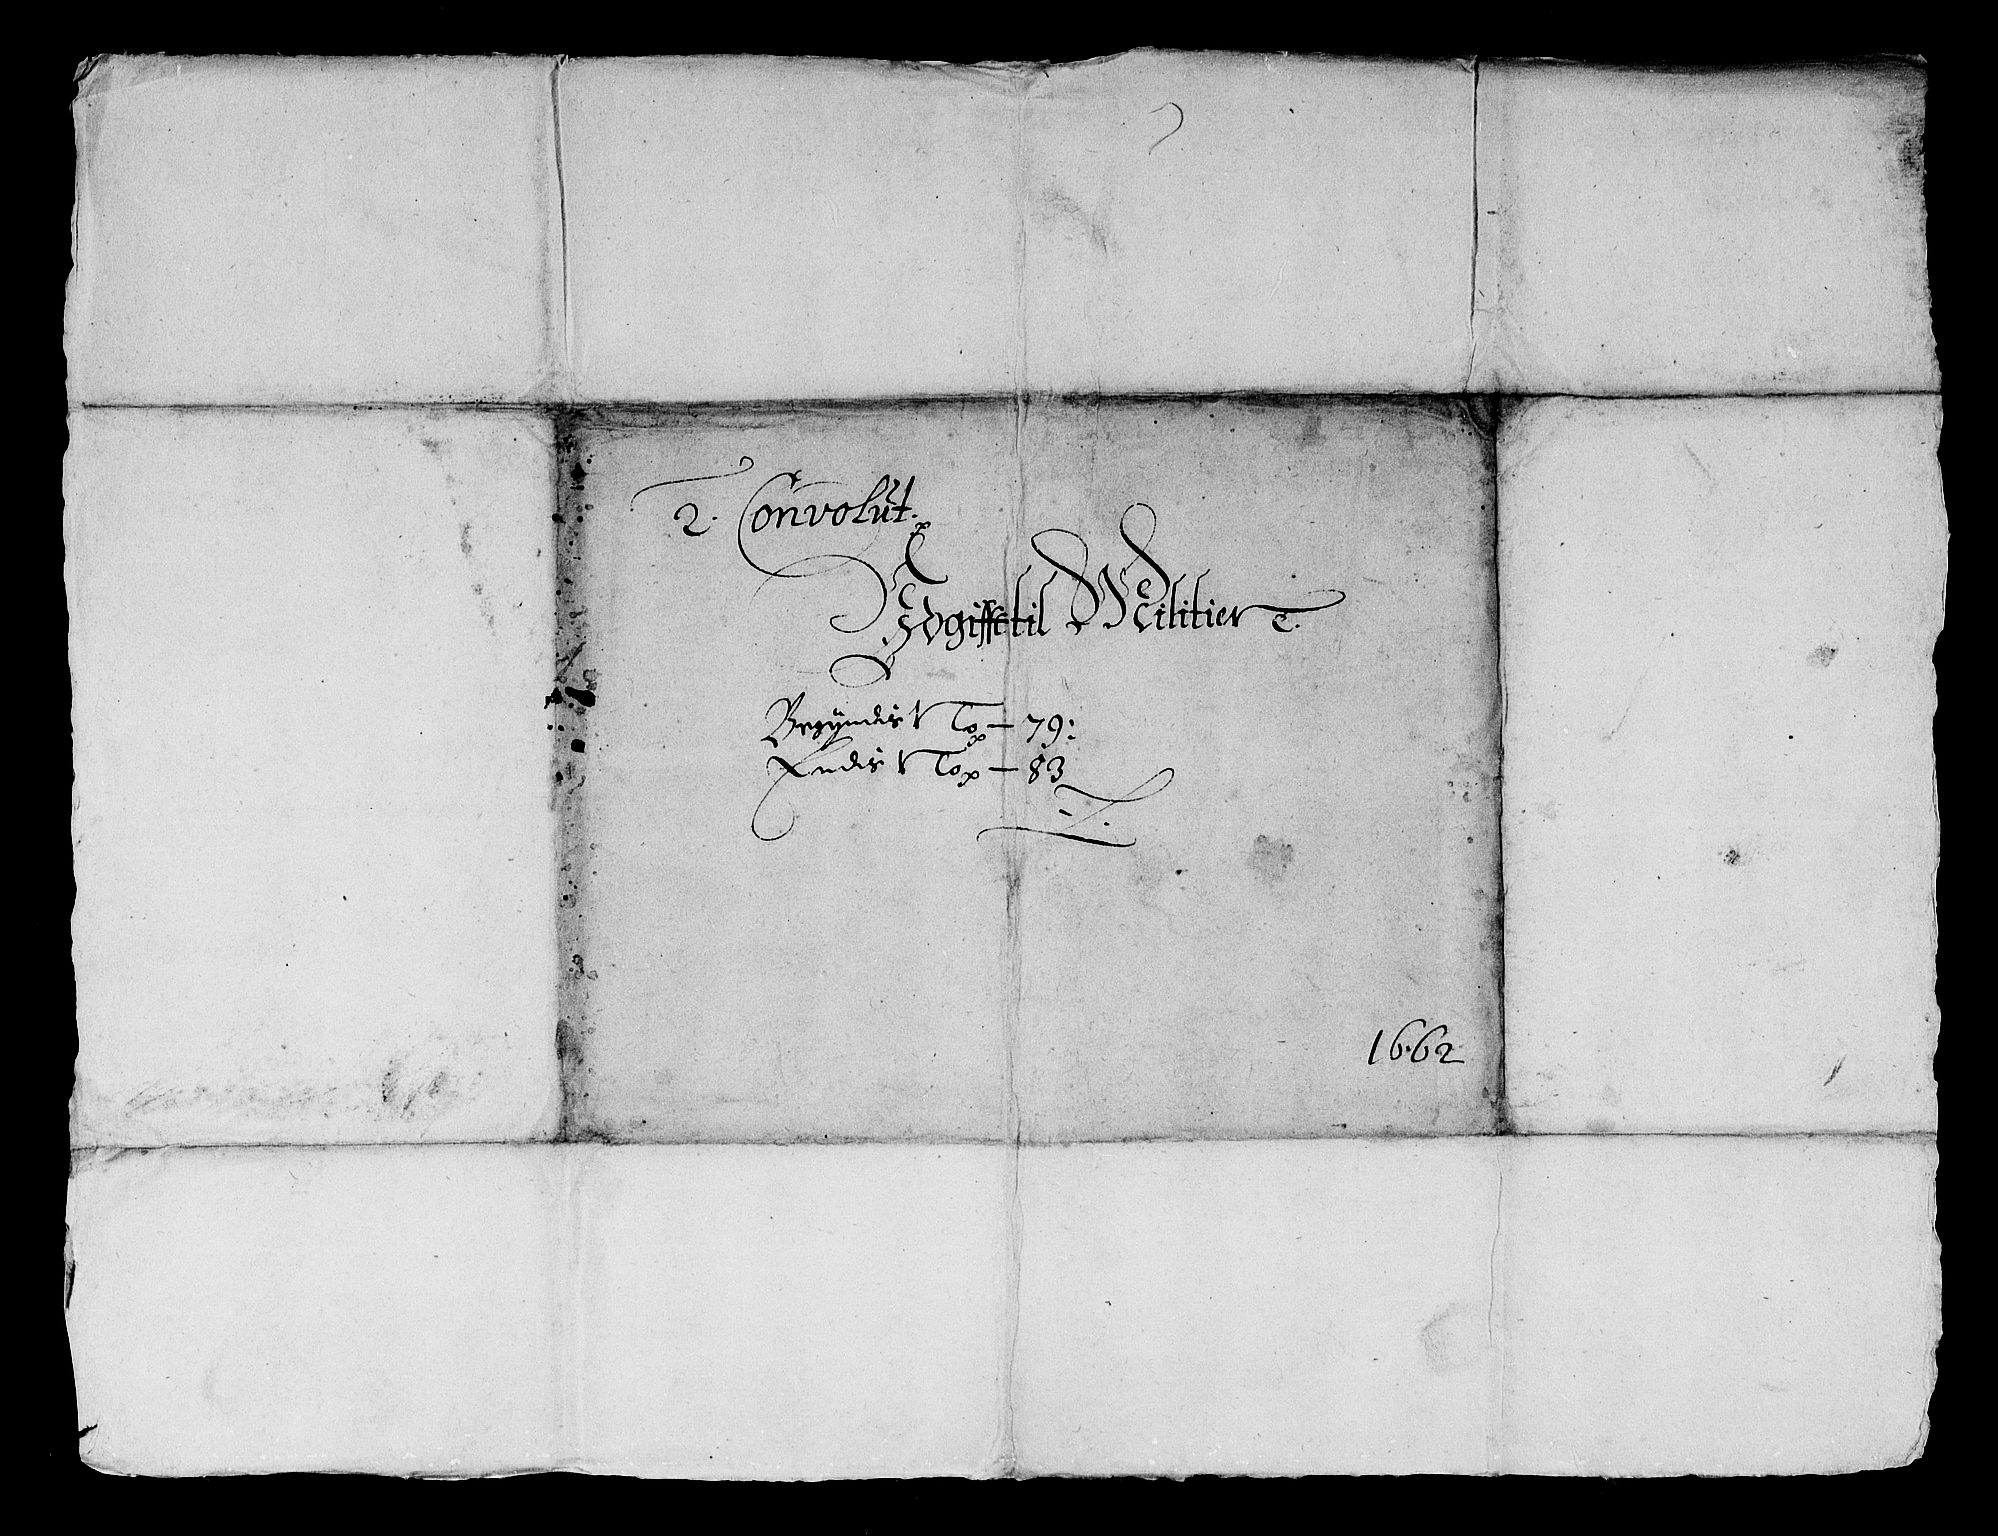 2. Convolut.
Udgifft til Militien
Begyndis No 79:
Endis No 83
1662